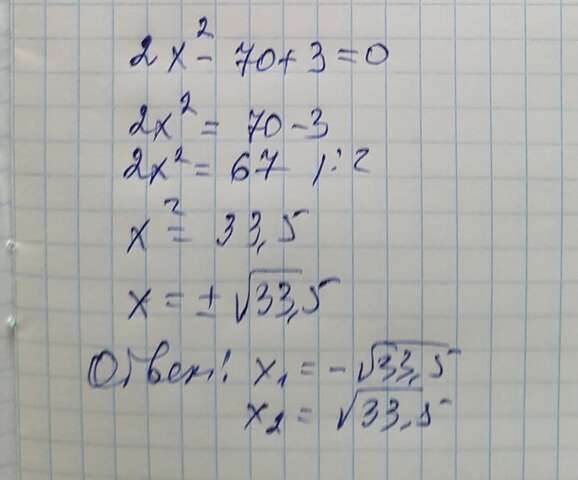 2x² - 70 + 3 = 0
2x² = 70 - 3
2x² = 67 | : 2
x² = 33,5
x = ± √33,5
Ответ: x₁ = - √33,5
x₂ = √33,5